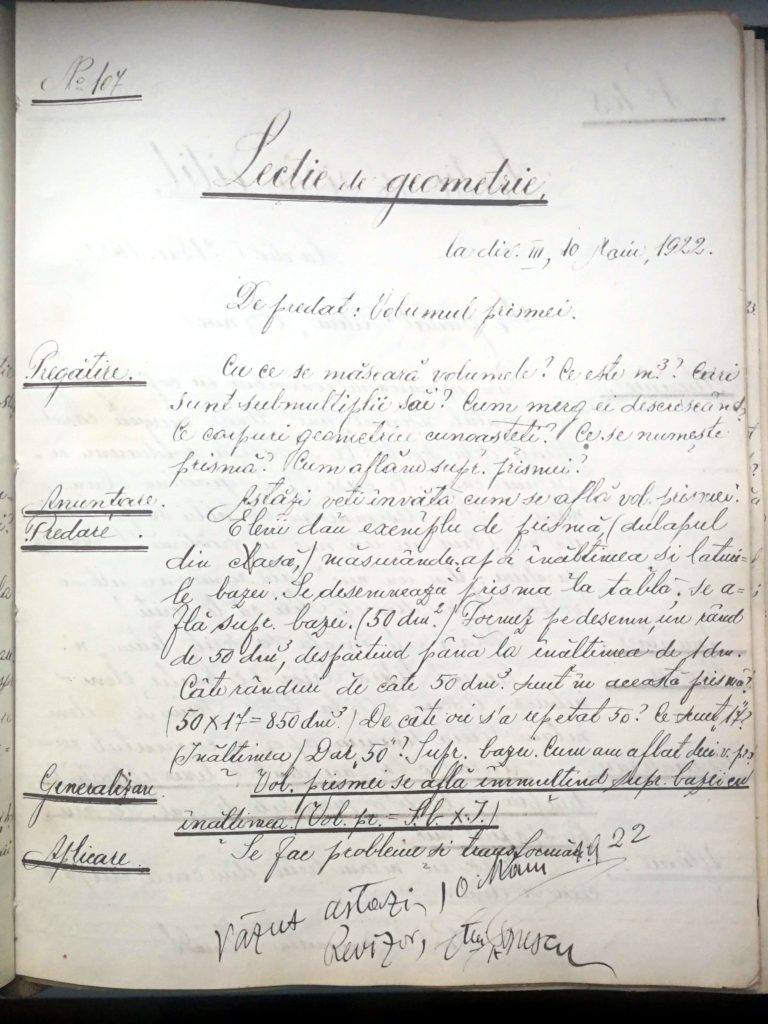 No 107
Lectie de geometrie.
la div. III, 10 Maiu, 1922.
De predat: Volumul prismei.
Pregătire. Cu ce se măsoară volumele? Ce este m.³? Cari
sunt submultiplii săi? Cum merg ei descrescând?
Ce corpuri geometrice cunoasteti? Ce se numește
prismă? Cum aflăm supr. prismei?
Anunțare. Astăzi veti învăta cum se află vol. prismei.
Predare. Elevii dau exemplu de prismă (dulapul
din clasă,) măsurându-apoi înăltimea si laturi=
le bazei. Se desemnează prisma la tablă. se a=
flă supr. bazei. (50 dm.²) Formez pe desemn, un rând
de 50 dm³, despărtind până la înăltimea de 1 dm.
Câte rânduri de câte 50 dm³. sunt în această prismă?
(50 X 17 = 850 dm³.) De câte ori s'a repetat 50? Ce sunt „17"?
(Inăltimea) Dar „50"? Supr. bazei. Cum am aflat deci v. pr.?
Generalizare. Vol. prismei se află înmultind supr. bazei cu
înăltimea. (Vol. pr. = S.b. X I.)
Aplicare. Se fac probleme si transformări
Văzut astazi, 10 Maiu 922
Revizor,